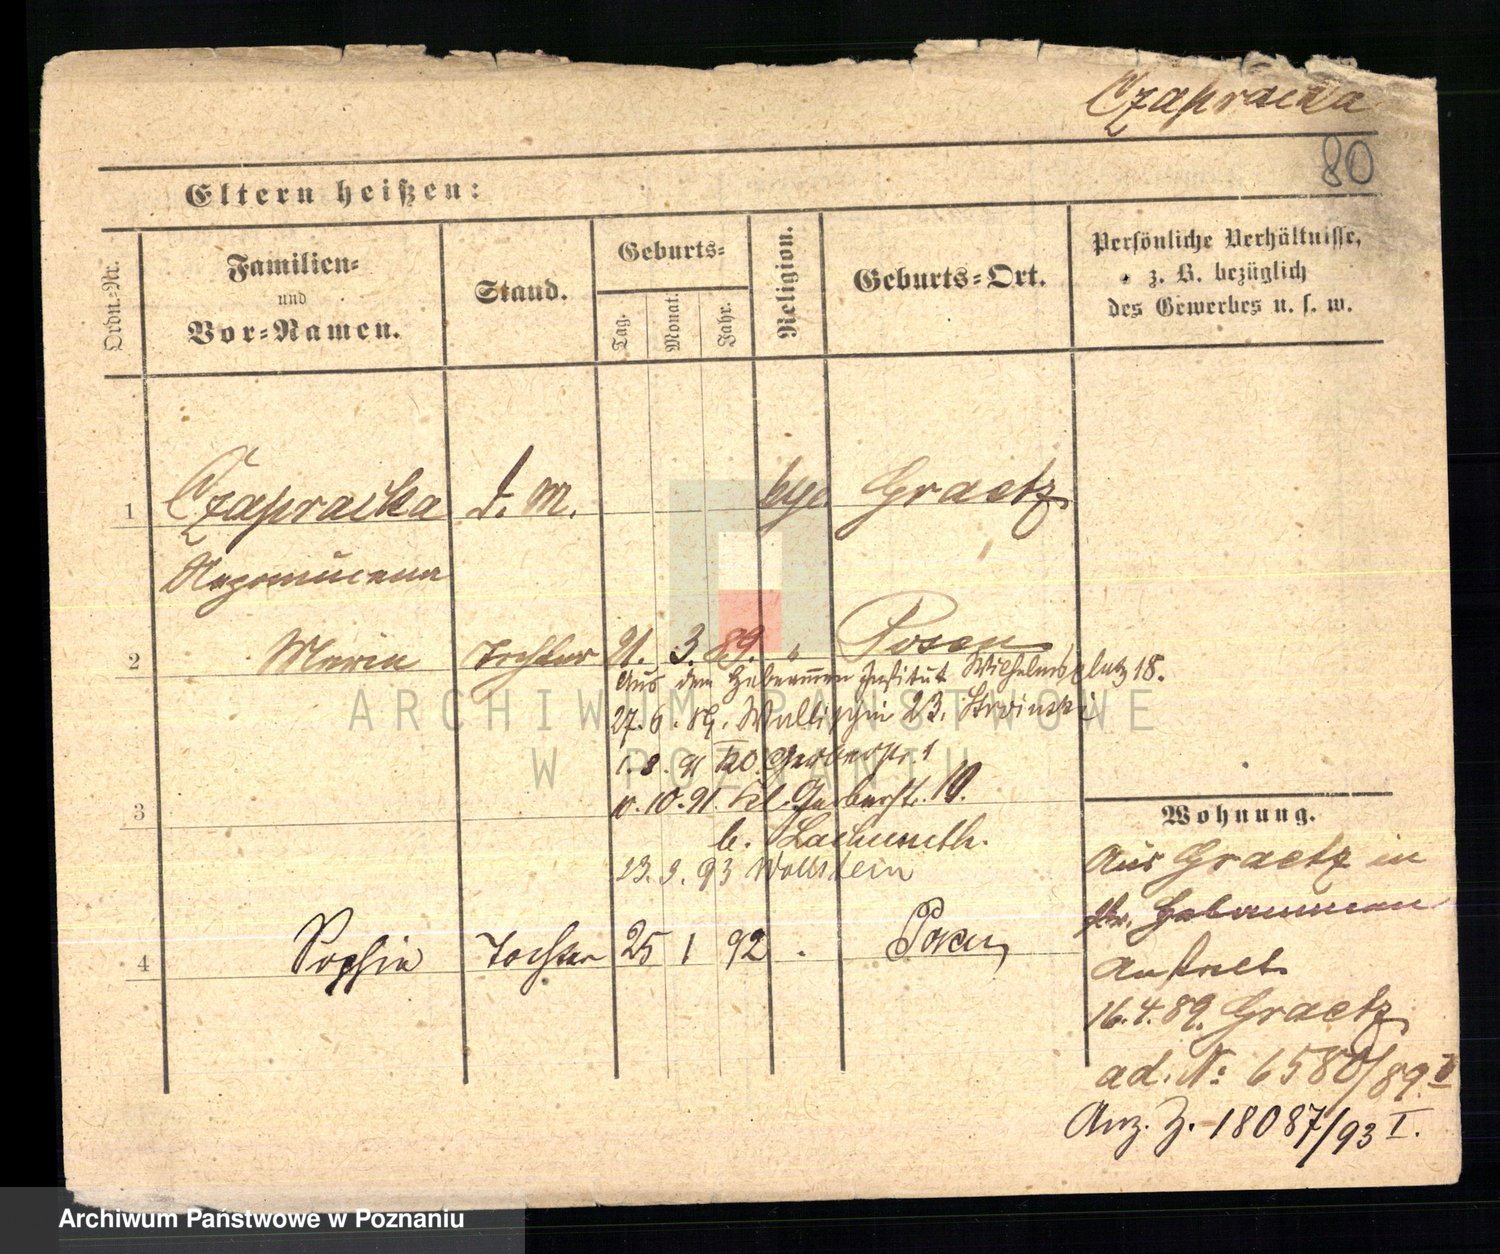 Czapracka
80
Eltern heißen:
Ordn.-Nr.
Familien- und Vor-Namen.
Stand.
Geburts-
Tag.
Monat.
Jahr.
Religion.
Geburts-Ort.
Persönliche Verhältnisse,
z. B. bezüglich
des Gewerbes u. s. w.
1 Czapracka d. M. Graetz
Nepomucena
2 Maria Tochter 21. 3. 89. " Posen
Aus dem Hebammen Institut Wilhelmsplatz 18.
27. 6. 89. Wallischei 23.
1. 8. 91 Gerberstr. 1
10. 91. Kl. Gerberstr. 10.
3
b.
23. 9. 93 Wollstein
4 Sophie Tochter 25 1 92 " Posen
Wohnung.
Aus Graetz in
Hebammen
Anstalt
16. 4. 89. Graetz
ad. N: 6580/89. I
Anz. Z. 18087/93 I.
ARCHIWUM PAŃSTWOWE
W POZNANIU
Archiwum Państwowe w Poznaniu